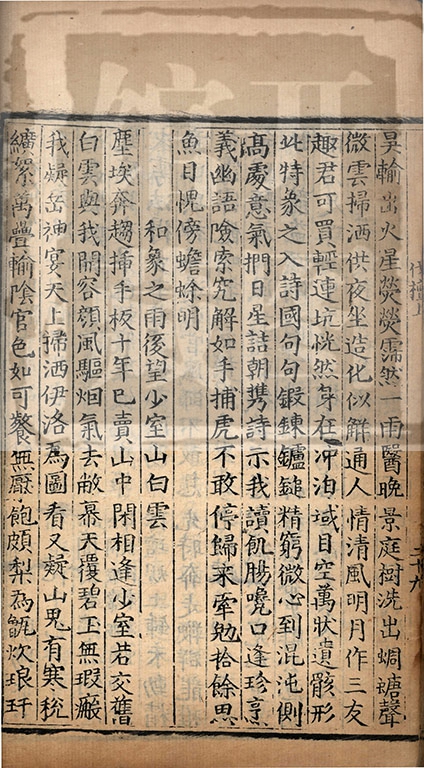 昊輪出火星熒熒霈然一雨醫晚景庭樹洗出蜩螗聲
微雲掃洒供夜坐造化似觧通人情清風明月作三友
趣君可買輕連坑恍然身在冲泊域目空萬狀遺骸形
此特象之入詩國句句鍛鍊鑪鎚精窮微心到混沌側
髙處意氣捫日星詰朝携詩示我讀飢腸嚵口逢珍烹
義幽語險索究觧如手捕虎不敢停歸来牽勉拾餘思
魚目愧傍蟾蜍明
和象之雨後望少室山白雲
塵埃奔趨揷手板十年已賣山中閑相逢少室若交舊
白雲與我開容顔風驅烟氣去敝幕天覆碧玉無瑕瘢
我疑岳神宴天上掃洒伊洛爲圖看又疑山鬼有寒稅
纊絮萬疊輸隂官色如可餐無厭飽頗梨為甑炊琅玕